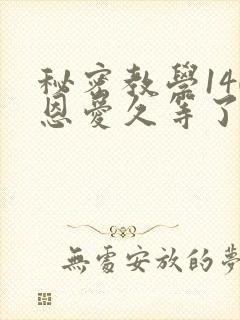 秘密教學14
恩愛久等了
無處安放的夢